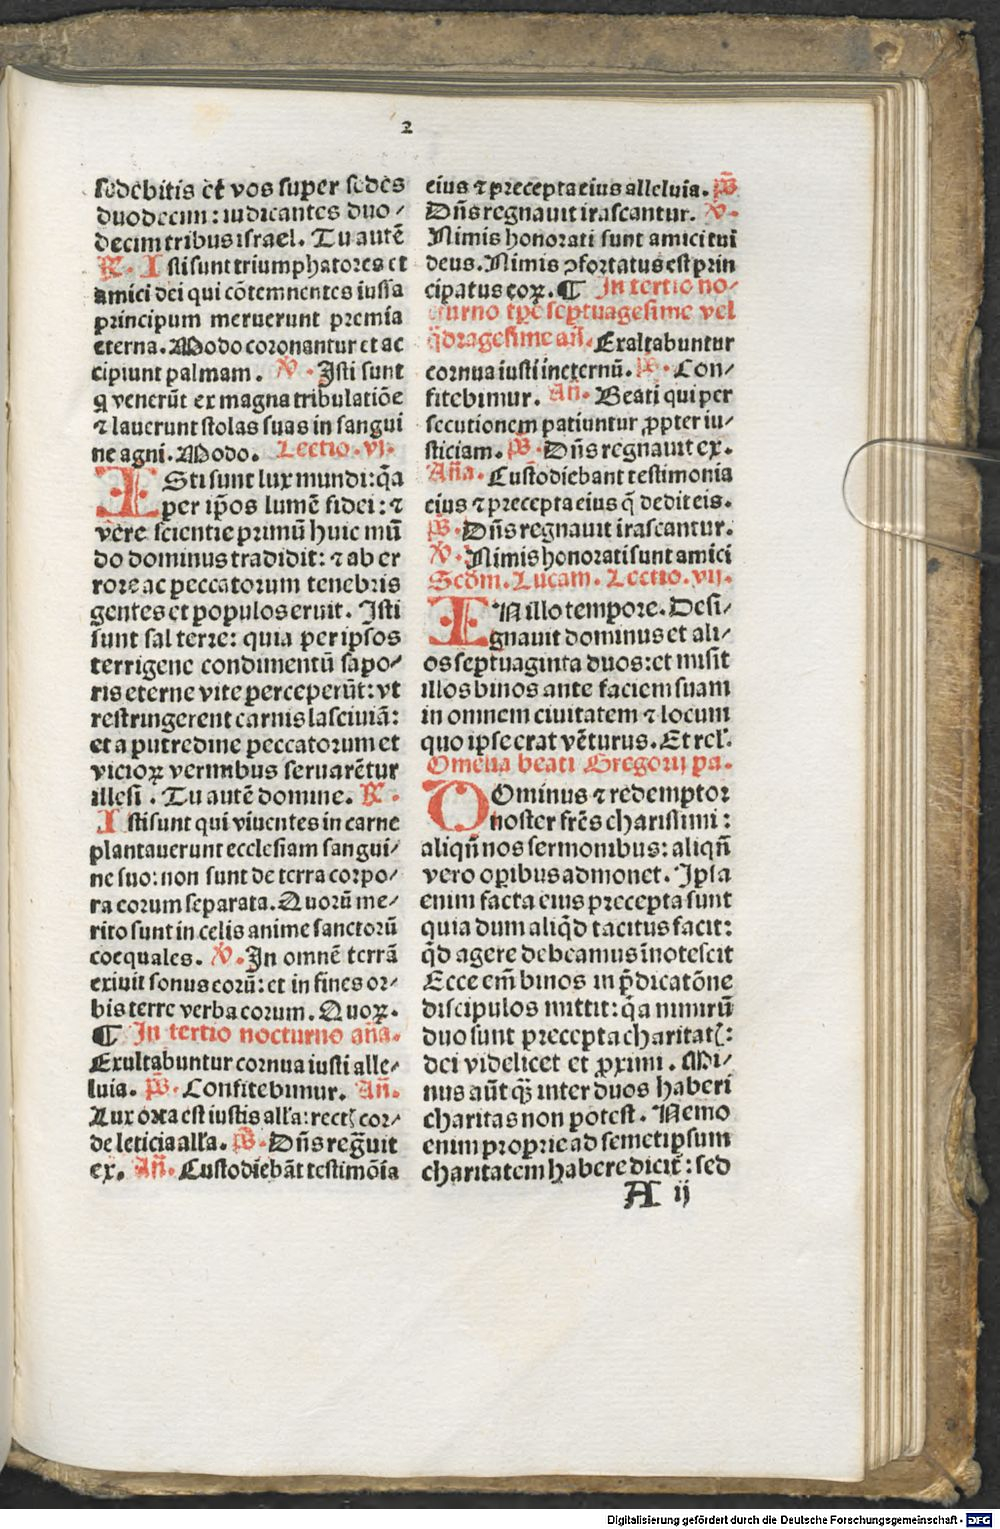 2
sedebitis et vos super sedes
duodecim: iudicantes duo-
decim tribus israel. Tu autē
R. Isti sunt triumphatores et
amici dei qui cōtemnentes iussa
principum meruerunt premia
eterna. Modo coronantur et ac
cipiunt palmam. V. Isti sunt
q venerūt ex magna tribulatiōe
⁊ lauerunt stolas suas in sangui
ne agni. Modo. Lectio. vj.
ISti sunt lux mundi: q̄a
per ip̄os lumē fidei: ⁊
vere scientie primū huic mū
do dominus tradidit: ⁊ ab er
rore ac peccatorum tenebris
gentes et populos eruit. Isti
sunt sal terre: quia per ipsos
terrigene condimentū sapo-
ris eterne vite perceperūt: vt
restringerent carnis lasciuiā:
et a putredine peccatorum et
vicioꝝ vermibus seruarētur
illesi. Tu autē domine. R.
Isti sunt qui viuentes in carne
plantauerunt ecclesiam sangui-
ne suo: non sunt de terra corpo-
ra eorum separata. Quorū me-
rito sunt in celis anime sanctorū
coequales. V. In omnē terrā
exiuit sonus eorū: et in fines or-
bis terre verba eorum. Quoꝝ.
¶ In tertio nocturno an̄a.
Exultabuntur cornua iusti alle-
luia. ps̄. Confitebimur. An̄.
Lux orta est iustis all'a: rectꝭ cor-
de leticia all'a. ps̄. Dn̄s regn̄uit
ex. An̄. Custodiebāt testimōia
eius ⁊ precepta eius alleluia. ps̄
Dn̄s regnauit irascantur. V.
Nimis honorati sunt amici tui
deus. Nimis ꝯfortatus est prin
cipatus eoꝝ. ¶ In tertio no-
cturno tp̄e septuagesime vel
q̄dragesime an̄. Exaltabuntur
cornua iusti in eternū. ps̄. Con-
fitebimur. An̄. Beati qui per
secutionem patiuntur ꝓpter iu-
sticiam. ps̄. Dn̄s regnauit ex.
An̄a. Custodiebant testimonia
eius ⁊ precepta eius q̄ dedit eis.
ps̄. Dn̄s regnauit irascantur.
V. Nimis honorati sunt amici
Scdm. Lucam. Lectio. vij.
IN illo tempore. Desi-
gnauit dominus et ali-
os septuaginta duos: et misit
illos binos ante faciem suam
in omnem ciuitatem ⁊ locum
quo ipse erat vēturus. Et rel'.
Omelia beati Gregorij pa.
DOminus ⁊ redemptor
noster fr̄es charissimi:
aliqn̄ nos sermonibus: aliqn̄
vero operibus admonet. Ipsa
enim facta eius precepta sunt
quia dum aliq̄d tacitus facit:
q̄d agere debeamus īnotescit
Ecce em̄ binos in p̄dicatōne
discipulos mittit: q̄a nimirū
duo sunt precepta charitatꝭ:
dei videlicet et ꝓximi. Mi-
nus aūt q̄ꝫ inter duos haberi
charitas non potest. Nemo
enim proprie ad semetipsum
charitatem habere dicit᷑: sed
A ij
Digitalisierung gefördert durch die Deutsche Forschungsgemeinschaft - DFG